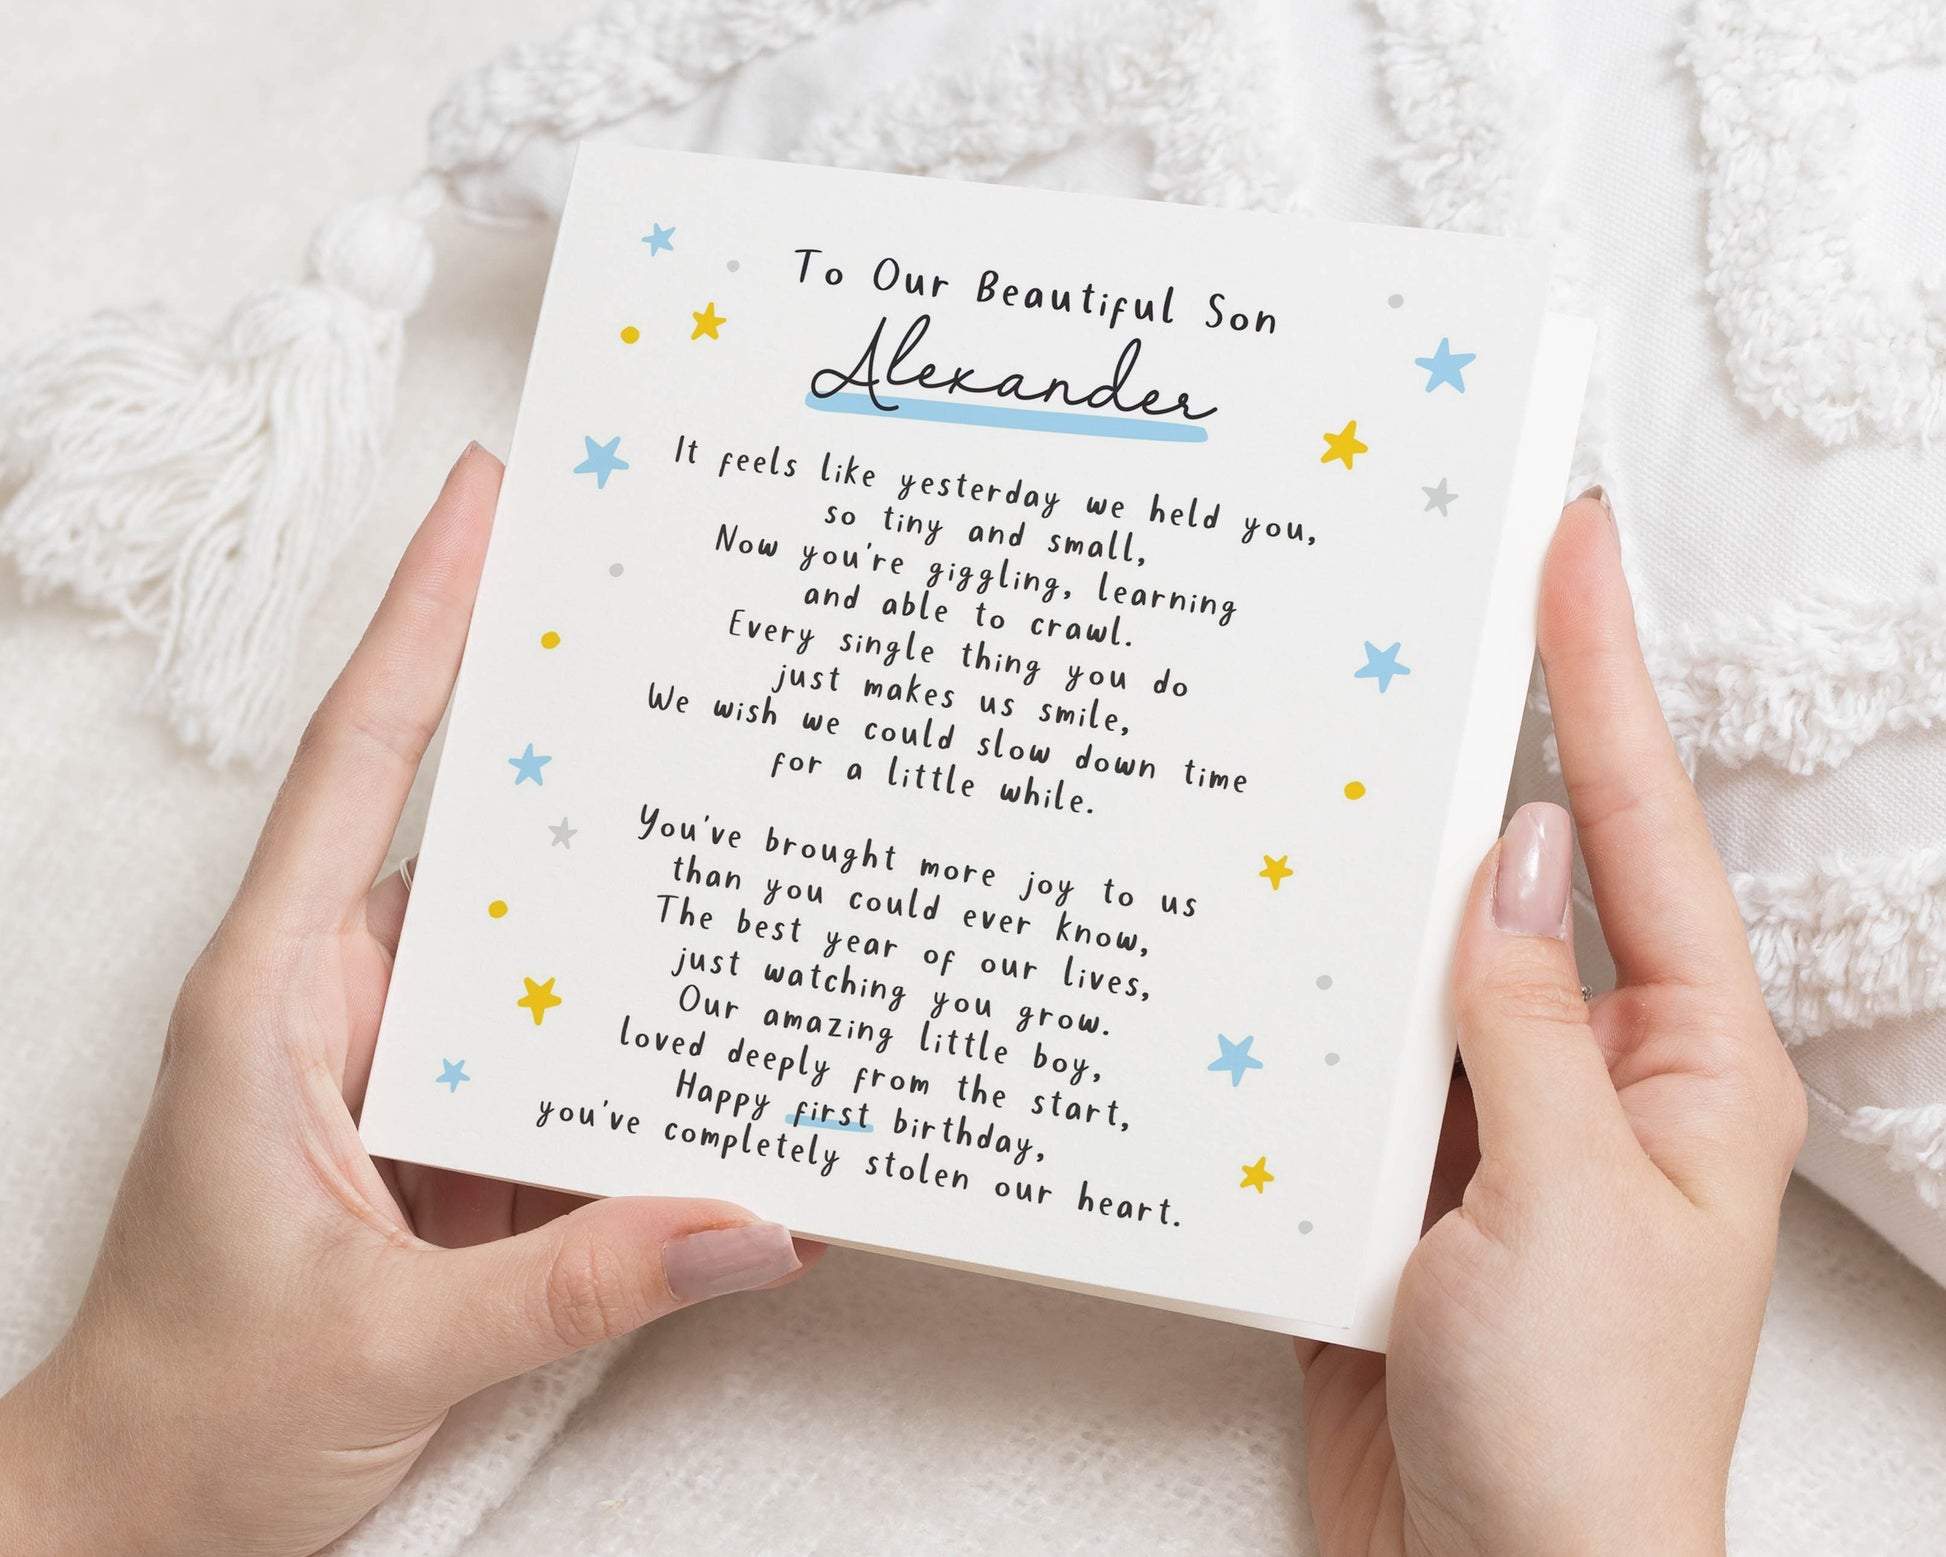 To Our Beautiful Son
Alexander
It feels like yesterday we held you,
so tiny and small,
Now you're giggling, learning
and able to crawl.
Every single thing you do
just makes us smile,
We wish we could slow down time
for a little while.
You've brought more joy to us
than you could ever know,
The best year of our lives,
just watching you grow.
Our amazing little boy,
loved deeply from the start,
Happy first birthday,
you've completely stolen our heart.